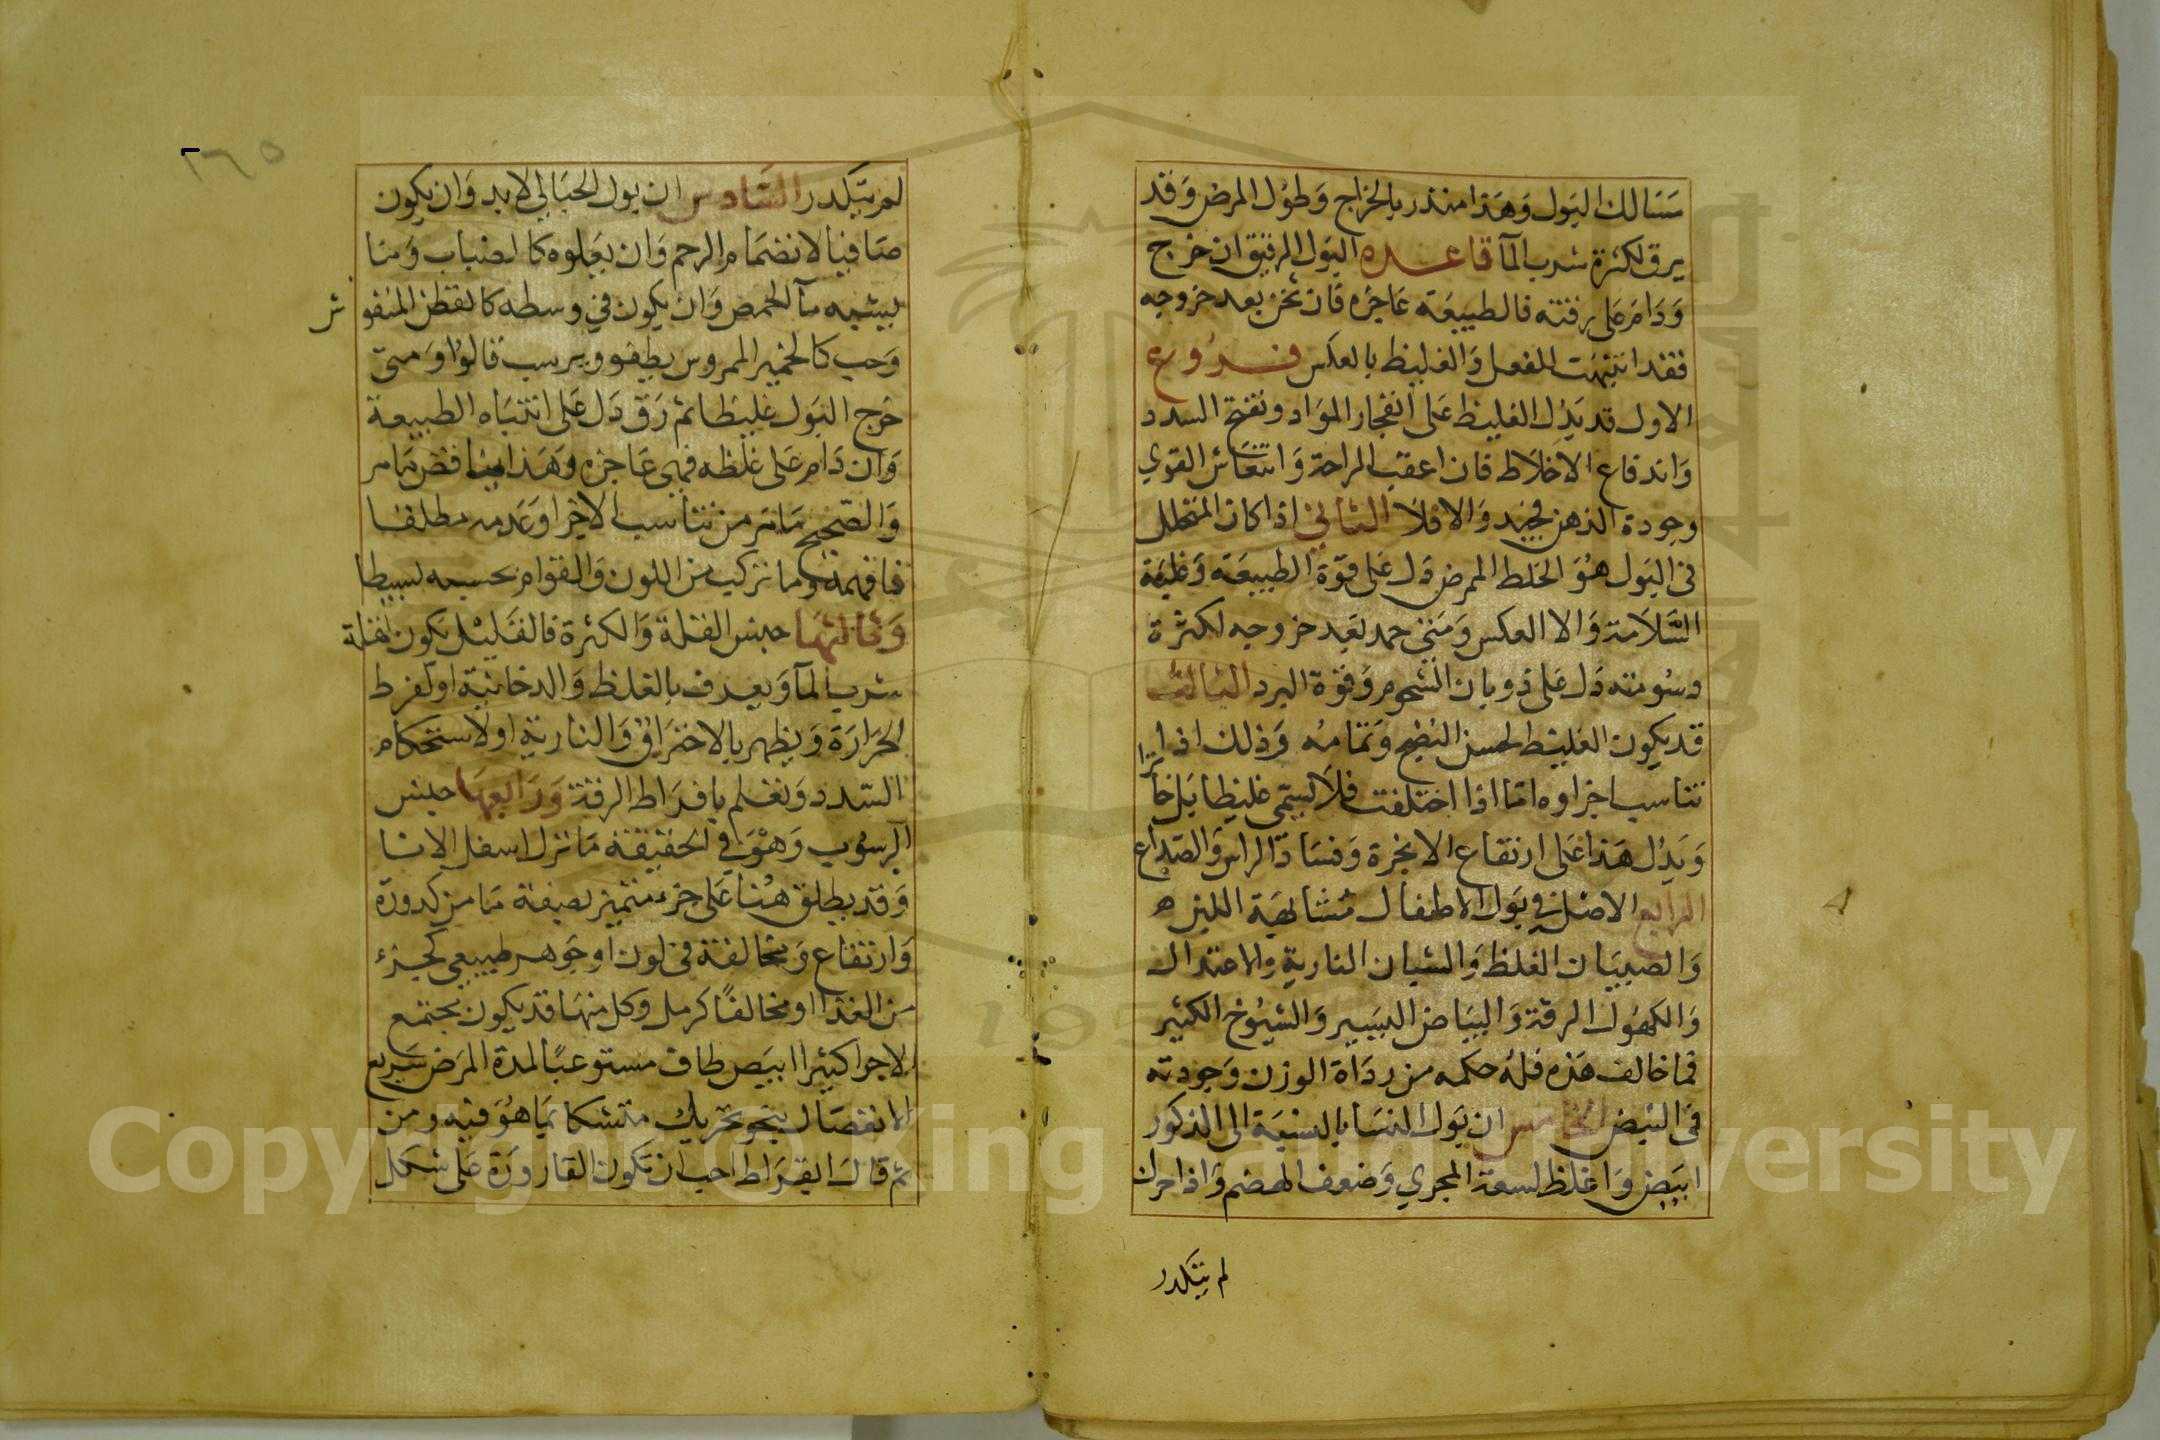 مسالك البول وهذا منذر بالخراج وطول المرض وقد
يرق لكثرة شرب المآ قاعده البول الرقيق ان خرج
ودام على رقته فالطبيعة عاجزه فان ثخن بعد خروجه
فقد انتبهت للفعل والغليظ بالعكس فروع
الاول قد يدل الغليظ على انفجار المواد وتفتح السدد
واندفاع الاخلاط فان اعقب الراحة وانتعاش القوي
وجودة الذهن فجيد والا فلا الثاني اذا كان المتحلل
في البول هو الخلط الممرض دل على قوة الطبيعة وغلبة
السلامة والا العكس ومتي جمد بعد خروجه لكثرة
دسومته دل على ذوبان الشحوم وقوة البرد الثالث
قد يكون الغليظ لحسن النضج وتمامه وذلك اذا
تناسب اجزاوه اما اذا اختلفت فلا يسمى غليظا بل خاثرا
ويدل هذا على ارتفاع الابخرة وفساد الراس والصداع
الرابع الاصل في بول الاطفال مشابهة اللبن ه
والصبيان الغلظ والشبان النارية والاعتدال
والكهول الرقة والبياض اليسير والشيوخ الكثير
فما خالف هذه فله حكمه من رداة الوزن وجودته
في النبض الخامس ان بول النسا بالنسبة الى الذكور
ابيض واغلظ لسعة المجري وضعف الهضم واذا حرك
لم يتكدر
٢٦٥
لم يتكدر السادس ان بول الحبالي لابد وان يكون
صافيا لانضمام الرحم وان يعلوه كالضباب ومنا
يشبه مآ الحمص وان يكون في وسطه كالقطن المنفوش
وحب كالخمير الممروس يطفو ويرسب قالوا ومتى
خرج البول غليظا ثم رق دل على انتباه الطبيعة
وان دام على غلظه فهى عاجزه وهذا يناقض ما مر
والصحيح ما مر من تناسب الاجزا وعدمه مطلقا
فافهمه وما تركب من اللون والقوام بحسبه بسيطا
وثالثها جنس القلة والكثرة فالقليل يكون لقلة
شرب المآ ويعرف بالغلظ والدخانية او لفرط
الحرارة ويظهر بالاحتراق والنارية او لاستحكام
السدد ويعلم بافراط الرقة ورابعها جنس
الرسوب وهو في الحقيقة ما نزل اسفل الانا
وقد يطلق هنا على جزء متميز بصفة ما من كدورة
وارتفاع ومخالفة في لون او جوهر طبيعي كجزء
من الغذا او مخالفا كرمل وكل منها قد يكون مجتمع
الاجزا كثيرا ابيض طاف مستوعبا لمدة المرض سريع
الانفصال بنحو تحريك متشكا بما هو فيه ومن
ثم قال ابقراط احب ان تكون القارورة على شكل